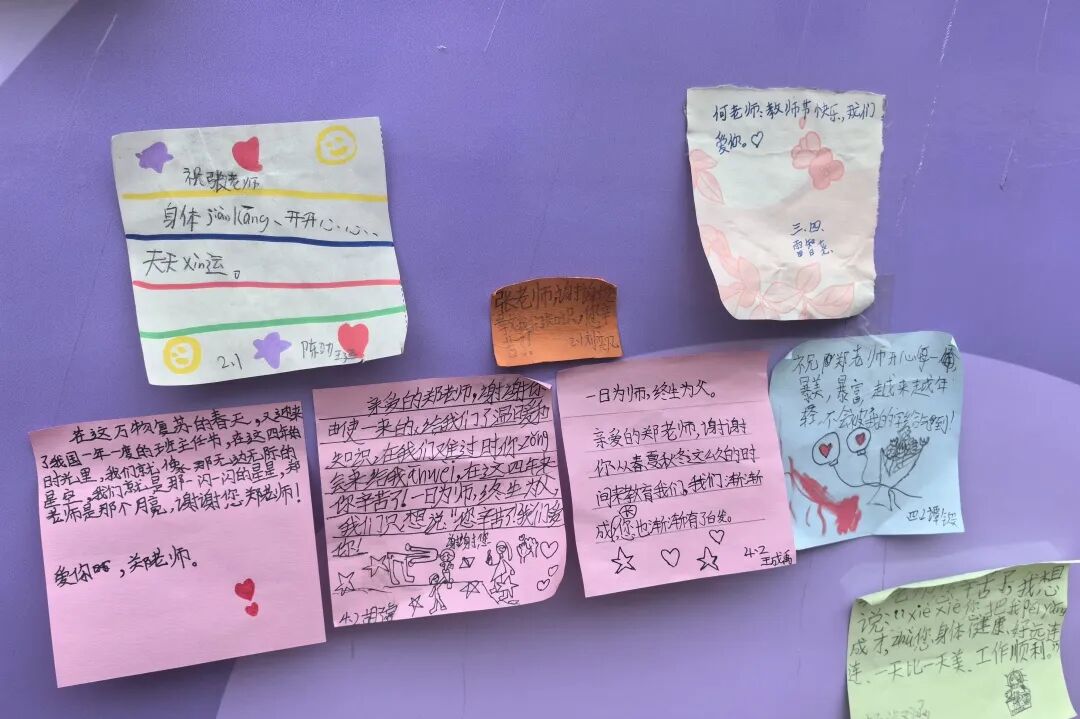 祝张老师
身体jiàn kāng、开开心心、
天天xìn运。
2.1 陈劲
何老师：教师节快乐，我们
爱你。♡
三.四.
雷智尧
张老师谢谢
2.1刘奕凡
在这万物复苏的春天，又迎来
了我国一年一度的班主任节，在这四年的
时光里，我们就像那无边无际的
星空，我们就是那一闪一闪的星星，郑
老师是那个月亮，谢谢您郑老师！
爱你，郑老师。
亲爱的郑老师，谢谢你
一来的给我们了温暖和
知识，在我们难过时你zǒng
会来告我ān wèi，在这四年来
你辛苦了！一日为师，终生为父，
我们只想说“您辛苦了！我们爱
你！
谢谢您
4.2胡
一日为师，终生为父。
亲爱的郑老师，谢谢
你从春夏秋冬这么久的时
间来教育我们。我们渐渐
成你也渐渐有了白发。
4.2
王成禹
祝郑老师开心每一
暴美，暴富，越来越年
四2谭
辛苦了我想
说：“xiè xiè你把我们yǎng
成才，zhù您身体健康、好运连
连、一天比一天美、工作顺利。”